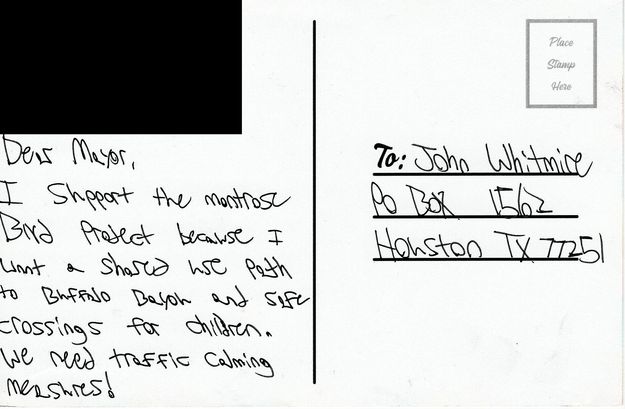 Dear Mayor,
I support the montrose
Blvd Project because I
want a shared use path
to Buffalo Bayou and safe
crossings for children.
We need traffic calming
measures!
Place
Stamp
Here
To: John Whitmire
PO Box 1562
Houston TX 77251